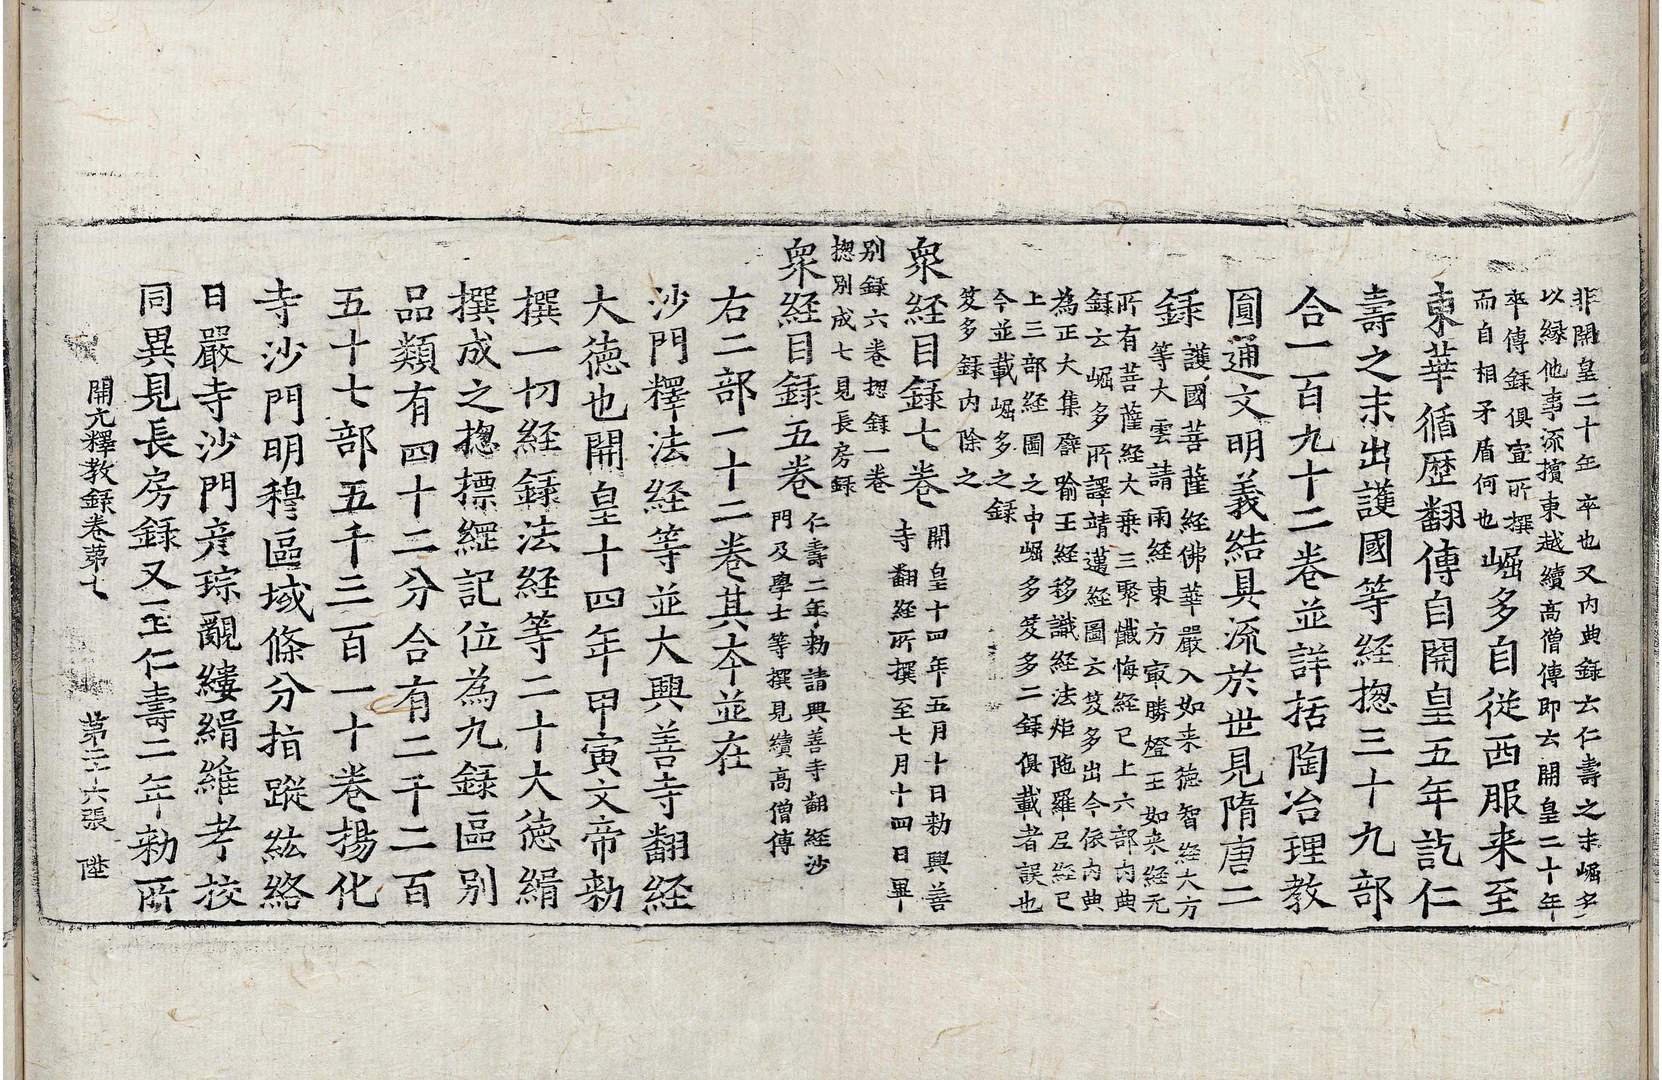 非開皇二十年卒也又內典錄云仁壽之末崛多
以緣他事流擯東越續高僧傳即云開皇二十年
卒傳錄俱宣所撰
而自相矛盾何也
崛多自從西服来至
東華循歷翻傳自開皇五年訖仁
壽之末出護國等経揔三十九部
合一百九十二卷並詳括陶冶理教
圓通文明義結具流於世見隋唐二
錄
護國菩薩経佛華嚴入如来德智経大方
等大雲請雨経東方㝡勝燈王如来経无
所有菩薩経大乗三聚懺悔経已上六部內典
錄云崛多所譯靖邁経圖云笈多出今依內典
為正大集譬喻王経移識経法炬陁羅尼経已
上三部経圖之中崛多笈多二錄俱載者誤也
今並載崛多之錄
笈多錄內除之
衆経目錄七卷
開皇十四年五月十日勑興善
寺翻経所撰至七月十四日畢
別錄六卷揔錄一卷
揔別成七見長房錄
衆経目錄五卷
仁壽二年勑請興善寺翻経沙
門及學士等撰見續高僧傳
右二部一十二卷其本並在
沙門釋法経等並大興善寺翻経
大德也開皇十四年甲寅文帝勑
撰一切経錄法経等二十大德緝
撰成之揔摽綱記位為九錄區別
品類有四十二分合有二千二百
五十七部五千三百一十卷揚化
寺沙門明穆區域條分指蹤絃絡
日嚴寺沙門彦琮覼縷緝維考校
同異見長房錄又至仁壽二年勑所
開元釋教錄卷苐七 第二十六張 陞